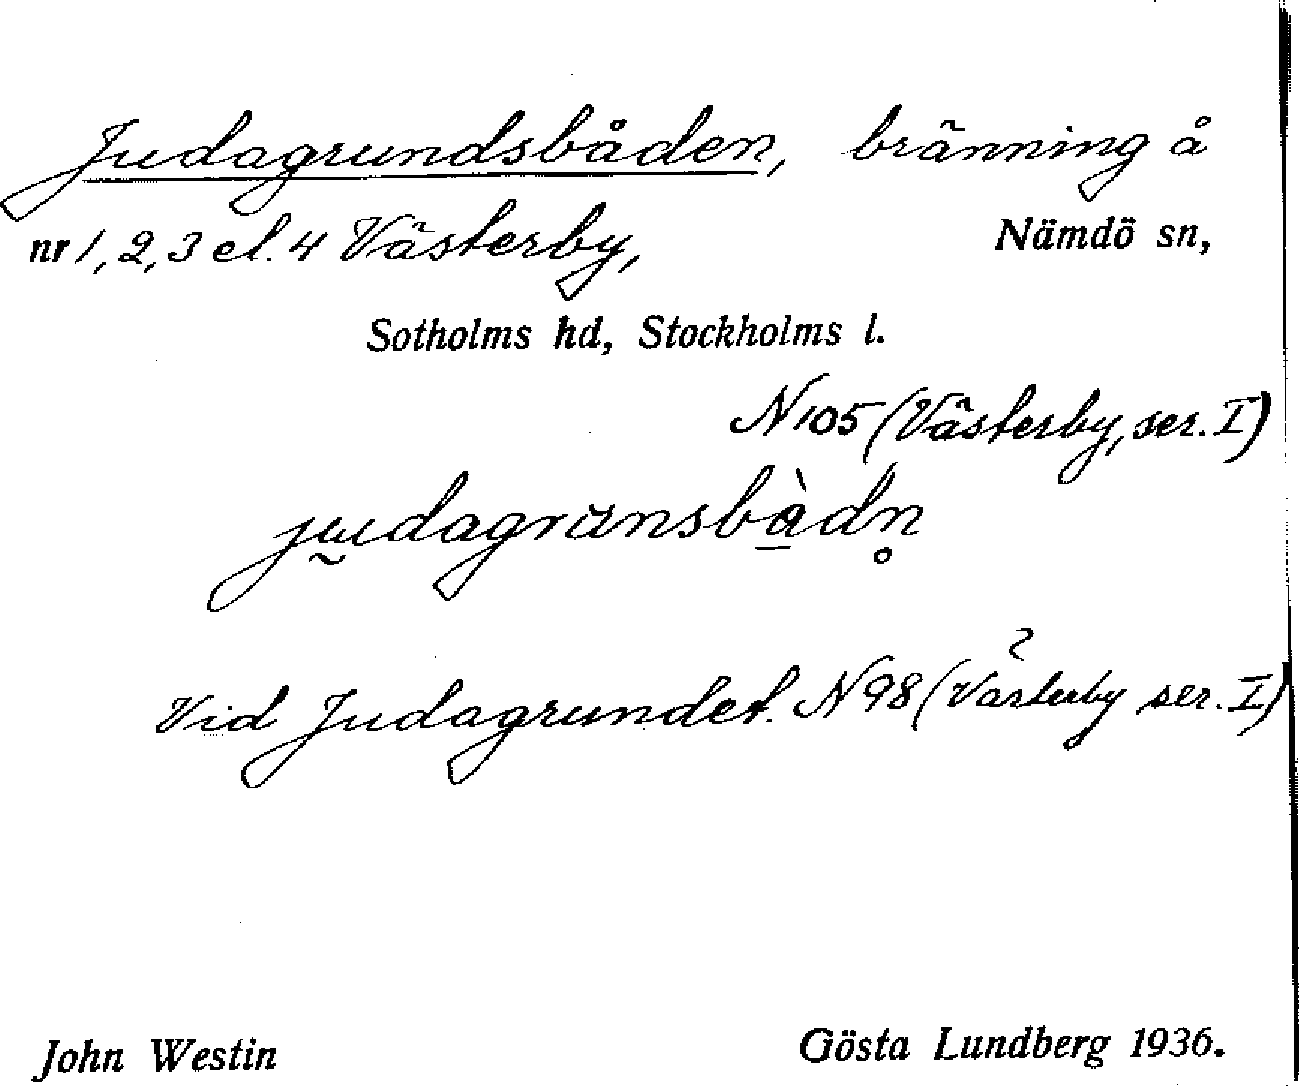 Judagrundsbåden, bränning å
nr 1, 2, 3 el. 4 Västerby, Nämdö sn,
Sotholms hd, Stockholms l.
N 105 (Västerby, ser. I)
jṵdagrunsbà̱dn̥
Vid Judagrundet. N 98 (Västerby ser. I)
John Westin Gösta Lundberg 1936.